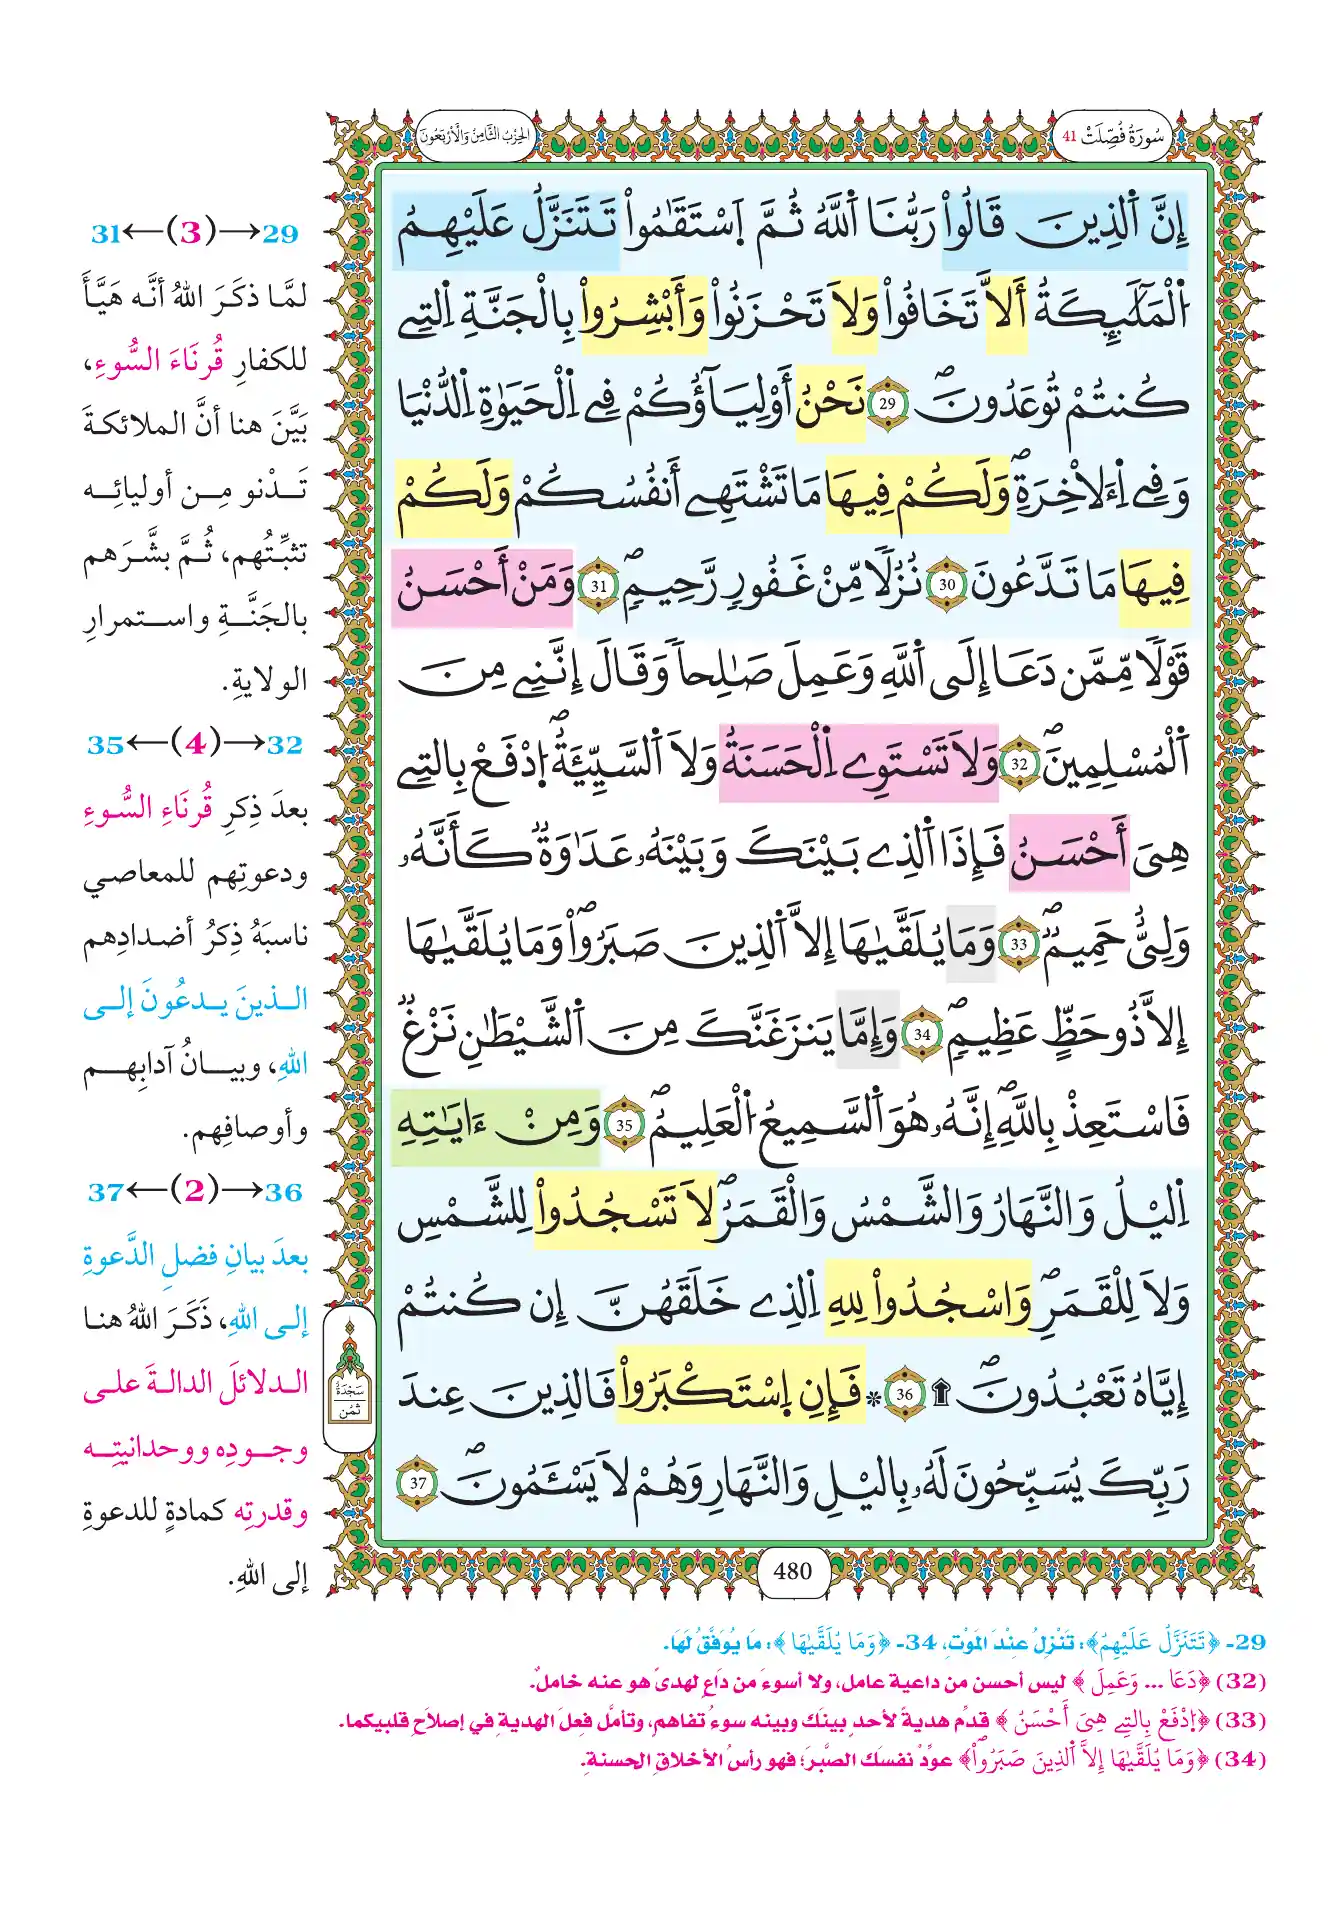 سُورَةُ فُصِّلَتْ 41
الحِزْبُ الثَّامِنُ وَالْأَرْبَعُونَ
إِنَّ اَ۬لذِينَ قَالُواْ رَبُّنَا اَ۬للَّهُ ثُمَّ اَ۪سْتَقَٰمُواْ تَتَنَزَّلُ عَلَيْهِمُ
اُ۬لْمَلَٰٓئِكَةُ أَلَّا تَخَافُواْ وَلَا تَحْزَنُواْ وَأَبْشِرُواْ بِالْجَنَّةِ اِ۬لتِے
كُنتُمْ تُوعَدُونَۖ 29 نَحْنُ أَوْلِيَآؤُكُمْ فِے اِ۬لْحَيَوٰةِ اِ۬لدُّنْيَا
وَفِے اِ۬لَاخِرَةِۖ وَلَكُمْ فِيهَا مَا تَشْتَهِے أَنفُسُكُمْ وَلَكُمْ
فِيهَا مَا تَدَّعُونَ 30 نُزُلًا مِّنْ غَفُورٍ رَّحِيمٍۖ 31 وَمَنْ أَحْسَنُ
قَوْلًا مِّمَّن دَعَا إِلَى اَ۬للَّهِ وَعَمِلَ صَٰلِحاً وَقَالَ إِنَّنِے مِنَ
اَ۬لْمُسْلِمِينَۖ 32 وَلَا تَسْتَوِے اِ۬لْحَسَنَةُ وَلَا اَ۬لسَّيِّئَةُۖ اُ۪دْفَعْ بِالتِے
هِيَ أَحْسَنُ فَإِذَا اَ۬لذِے بَيْنَكَ وَبَيْنَهُۥ عَدَٰوَةٌ كَأَنَّهُۥ
وَلِيٌّ حَمِيمٌۖ 33 وَمَا يُلَقَّيٰهَا إِلَّا اَ۬لذِينَ صَبَرُواْۖ وَمَا يُلَقَّيٰهَا
إِلَّا ذُو حَظٍّ عَظِيمٍۖ 34 وَإِمَّا يَنزَغَنَّكَ مِنَ اَ۬لشَّيْطَٰنِ نَزْغٌ
فَاسْتَعِذْ بِاللَّهِۖ إِنَّهُۥ هُوَ اَ۬لسَّمِيعُ اُ۬لْعَلِيمُۖ 35 وَمِنْ ءَايَٰتِهِ
اِ۬ليْلُ وَالنَّهَارُ وَالشَّمْسُ وَالْقَمَرُۖ لَا تَسْجُدُواْ لِلشَّمْسِ
وَلَا لِلْقَمَرِۖ وَاسْجُدُواْ لِلهِ اِ۬لذِے خَلَقَهُنَّ إِن كُنتُمْ
إِيَّاهُ تَعْبُدُونَۖ ۩ 36 * فَإِنِ اِ۪سْتَكْبَرُواْ فَالذِينَ عِندَ
رَبِّكَ يُسَبِّحُونَ لَهُۥ بِاليْلِ وَالنَّهَارِ وَهُمْ لَا يَسْـَٔمُونَۖ 37
سَجْدَة
ثُمُن
480
29→(3)←31
لمَّا ذكَرَ اللهُ أنَّه هَيَّأَ
للكفارِ قُرنَاءَ السُّوءِ،
بَيَّنَ هنا أنَّ الملائكةَ
تَدْنو مِن أوليائِه
تثبِّتُهم، ثُمَّ بشَّرَهم
بالجَنَّةِ واستمرارِ
الولايةِ.
32→(4)←35
بعدَ ذِكرِ قُرنَاءِ السُّوءِ
ودعوتِهم للمعاصي
ناسبَهُ ذِكرُ أضدادِهم
الذينَ يدعُونَ إلى
اللهِ، وبيانُ آدابِهم
وأوصافِهم.
36→(2)←37
بعدَ بيانِ فضلِ الدَّعوةِ
إلى اللهِ، ذَكَرَ اللهُ هنا
الدلائلَ الدالةَ على
وجودِه ووحدانيتِه
وقدرتِه كمادةٍ للدعوةِ
إلى اللهِ.
29- ﴿تَتَنَزَّلُ عَلَيْهِمُ﴾: تَنْزِلُ عِنْدَ المَوْتِ، 34- ﴿وَمَا يُلَقَّيٰهَا﴾: مَا يُوَفَّقُ لَهَا.
(32) ﴿دَعَا ... وَعَمِلَ﴾ ليس أحسن من داعية عامل، ولا أسوءَ من دَاعٍ لهدىً هو عنه خاملٌ.
(33) ﴿اُ۪دْفَعْ بِالتِے هِيَ أَحْسَنُ﴾ قدِّم هديةً لأحدٍ بينَك وبينه سوءُ تفاهمٍ، وتأمَّل فِعلَ الهديةِ في إصلاحِ قلبيكما.
(34) ﴿وَمَا يُلَقَّيٰهَا إِلَّا اَ۬لذِينَ صَبَرُواْۖ﴾ عوِّدْ نفسَك الصَّبرَ؛ فهو رأسُ الأخلاقِ الحسنةِ.